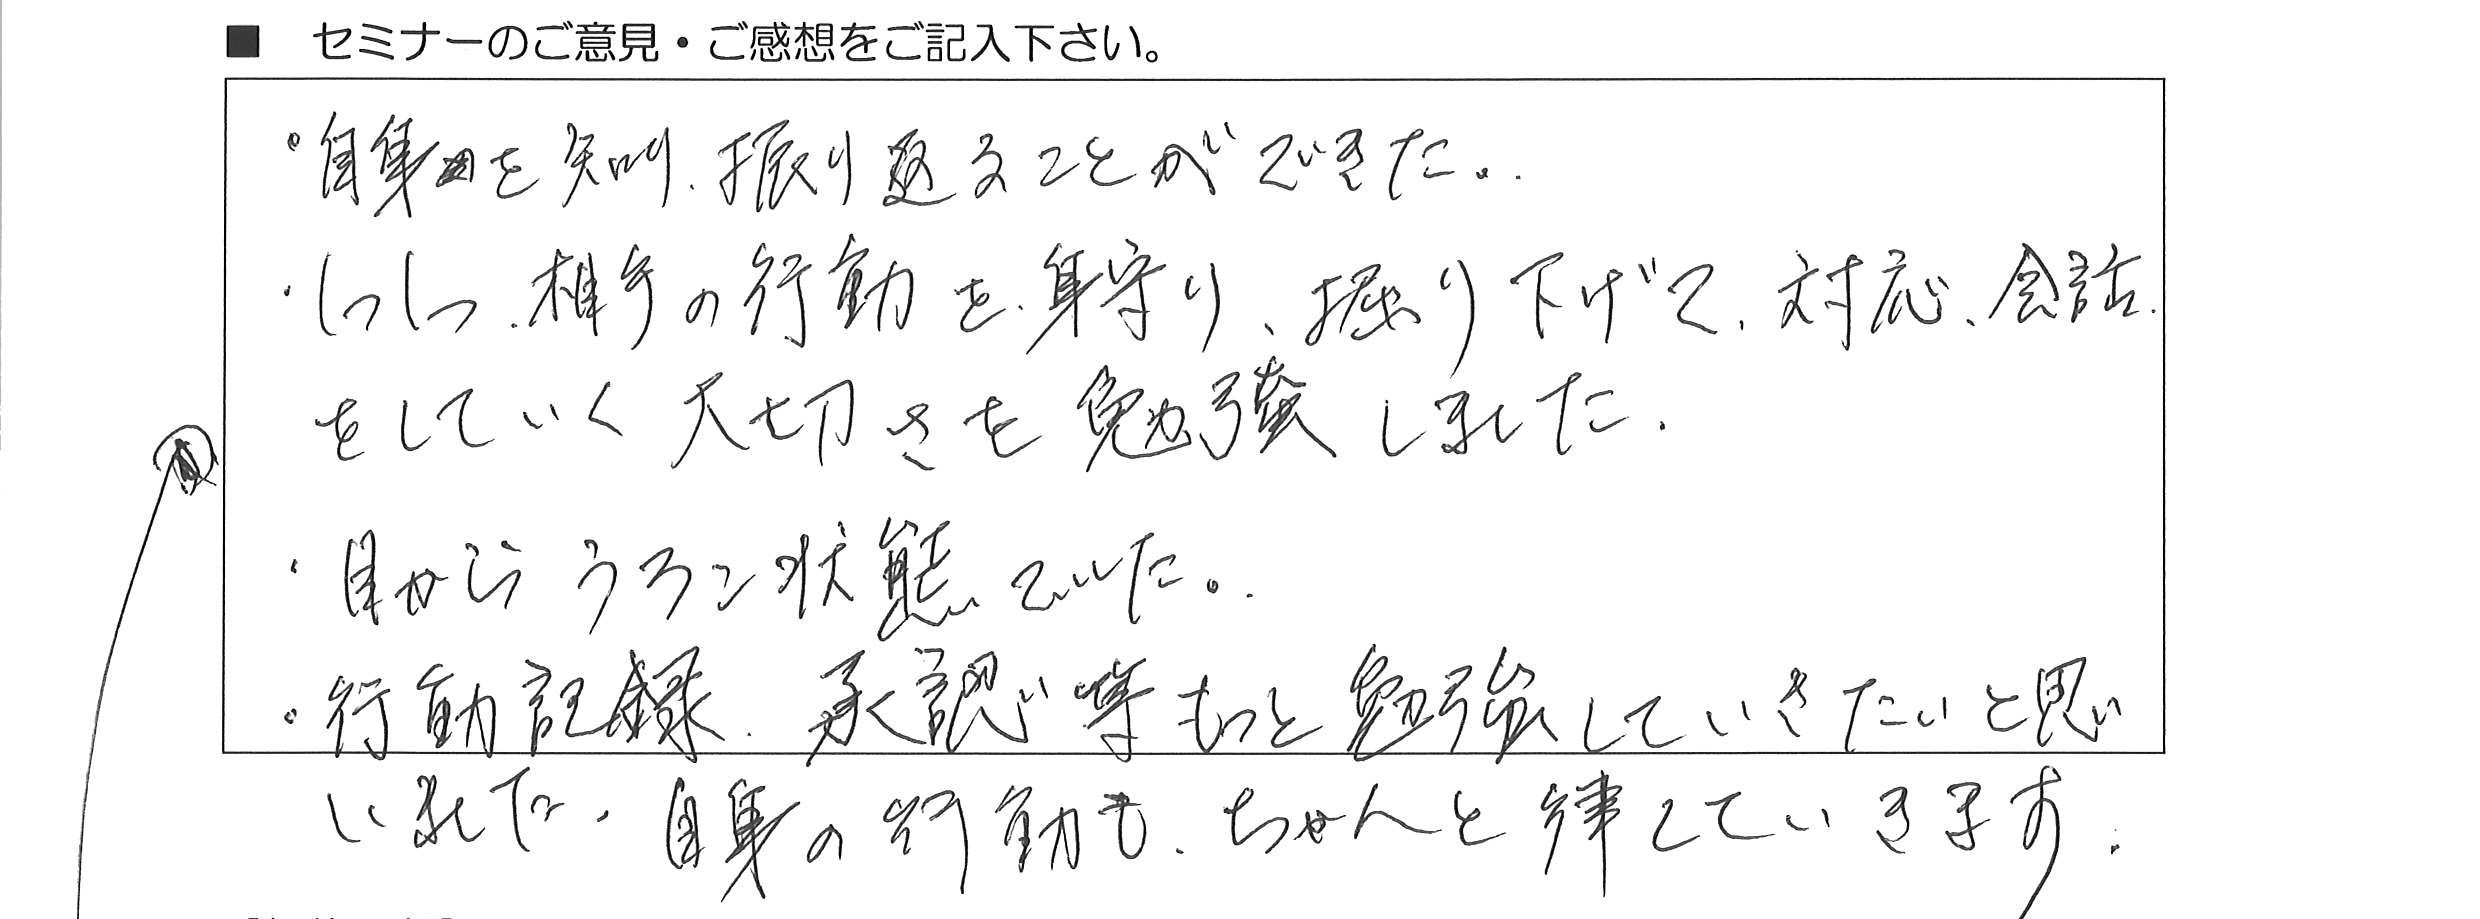 ■ セミナーのご意見・ご感想をご記入下さい。
・自身を知り、振り返ることができた。
・しっしっ、相手の行動を、身守り、掘り下げて、対応、会話
をしていく大切さを勉強しました。
・目からうろこ状態でした。
・行動記録、承認等もっと勉強していきたいと思い
いました。自身の行動も、ちゃんと律していきます。